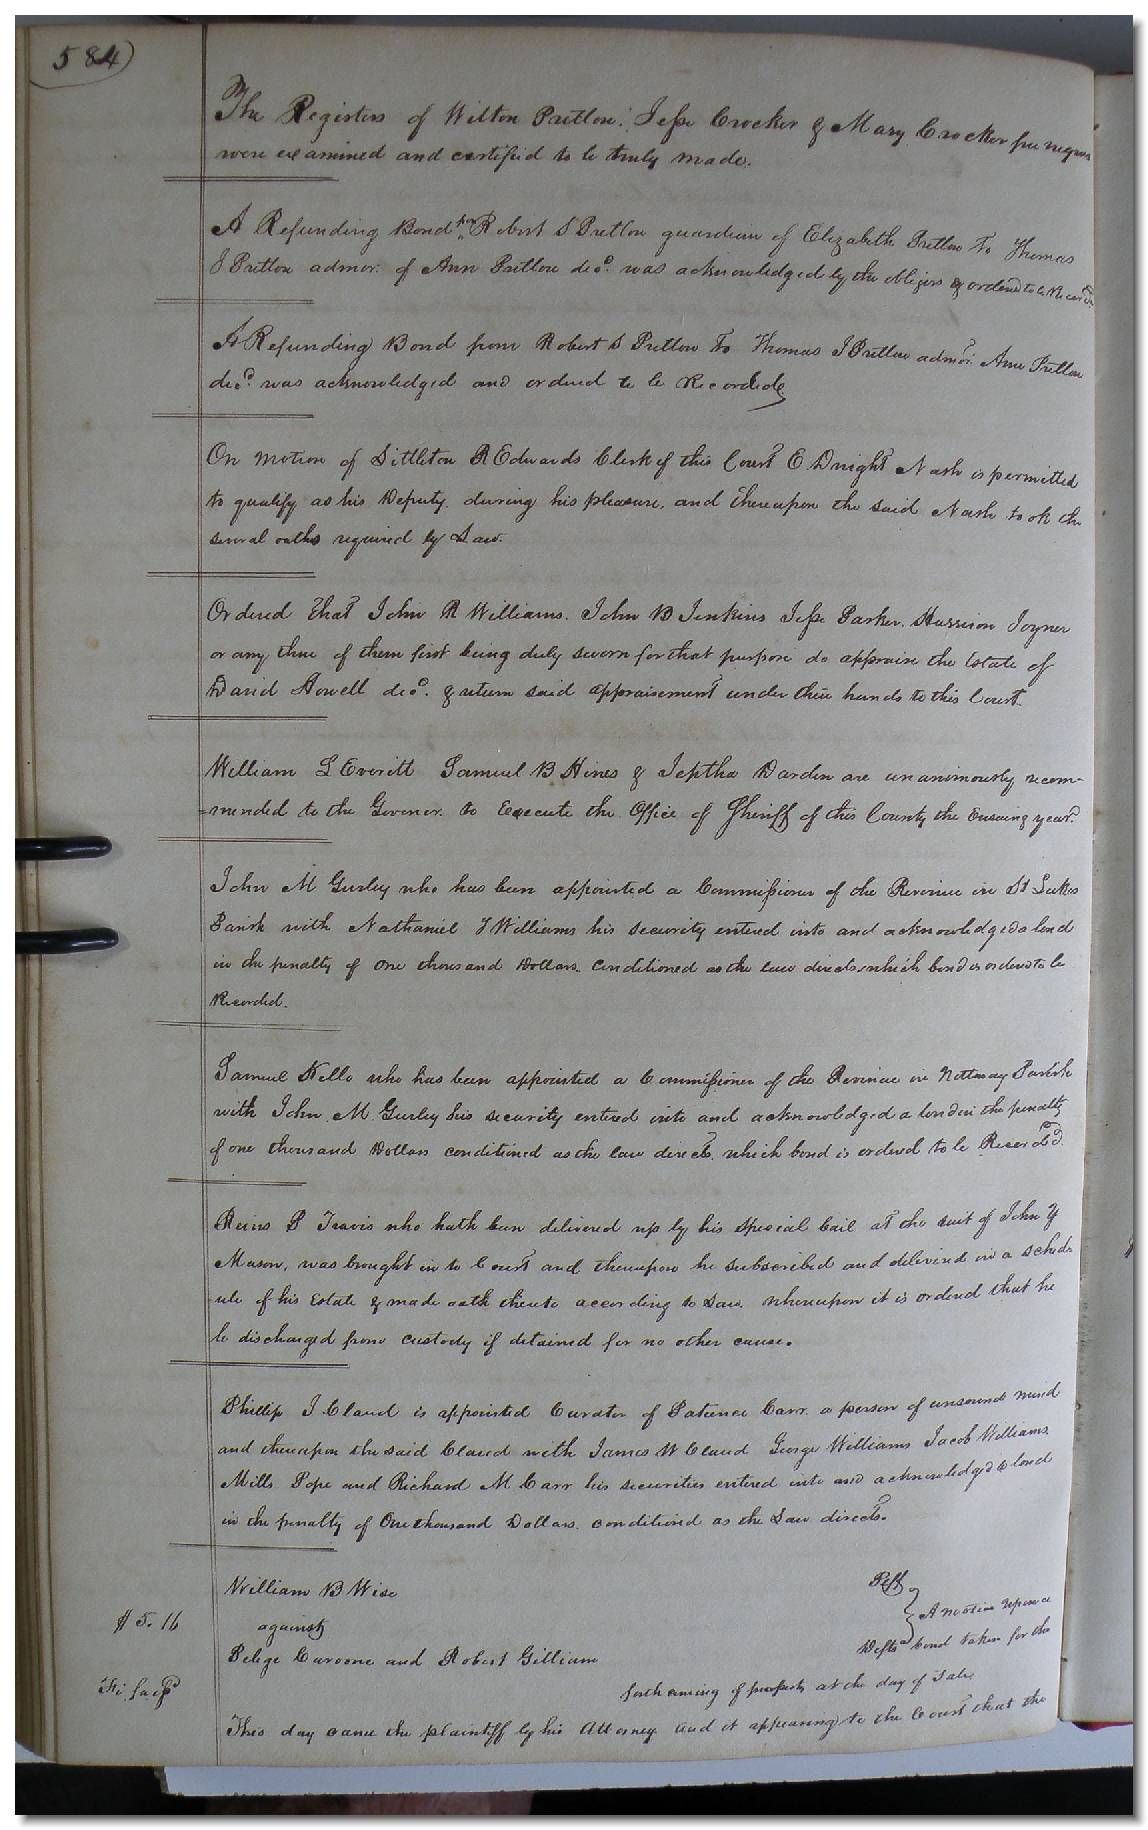 584
The Registers of Wilton Pretlow. Jesse Crocker & Mary Crocker free negroes
were examined and certified to be truly made.
A Refunding Bond from Robert S Pretlow guardian of Elizabeth Pretlow To Thomas
J Pretlow admor. of Ann Pretlow decd. was acknowledged by the obligors & ordered to be Recorded
A Refunding Bond from Robert S Pretlow To Thomas J Pretlow admor. Ann Pretlow
decd. was acknowledged and ordered to be Recorded
On motion of Littleton R Edwards Clerk of this Court E Dwight Nash is permitted
to qualify as his Deputy during his pleasure, and thereupon the said Nash took the
several oaths required by Law.
Ordered that John R Williams. John B Jenkins Jesse Parker. Harrison Joyner
or any three of them first being duly sworn for that purpose do appraise the Estate of
David Howell decd. & return said appraisement under their hands to this Court.
William L Everitt Samuel B Hines & Jeptha Darden are unanimously recom-
-mended to the Govenor. to Execute the Office of Sheriff of this County the Ensuing year.
John M Gurley who has been appointed a Commissioner of the Revenue in St Lukes
Parish with Nathaniel T Williams his security entered into and acknowledged a bond
in the penalty of One thousand Dollars. Conditioned as the law directs, which bond is ordered to be
Recorded.
Samuel Kello who has been appointed a Commissioner of the Revenue in Nottoway Parish
with John M Gurley his security entered into and acknowledged a bond in the penalty
of one thousand Dollars conditioned as the law directs. which bond is ordered to be Recorded.
P Travis who hath been delivered up by his special bail at the suit of John Y
Mason, was brought in to Court and thereupon he subscribed and delivered in a sched-
-ule of his Estate & made oath thereto according to Law. whereupon it is ordered that he
be discharged from custody if detained for no other cause.
Phillip J Claud is appointed Curator of Patience Carr. a person of unsound mind
and thereupon the said Claud with James W Claud George Williams Jacob Williams.
Mills Pope and Richard M Carr his securities entered into and acknowledged a bond
in the penalty of One thousand Dollars. conditioned as the Law directs.
William B Wise Plff
A motion upon a
$5.16 against
Defts bond taken for the
and Robert Gilliam
Fi. fa
forthcoming of property at the day of Sale
This day came the plaintiff by his Attorney and it appearing to the Court that the